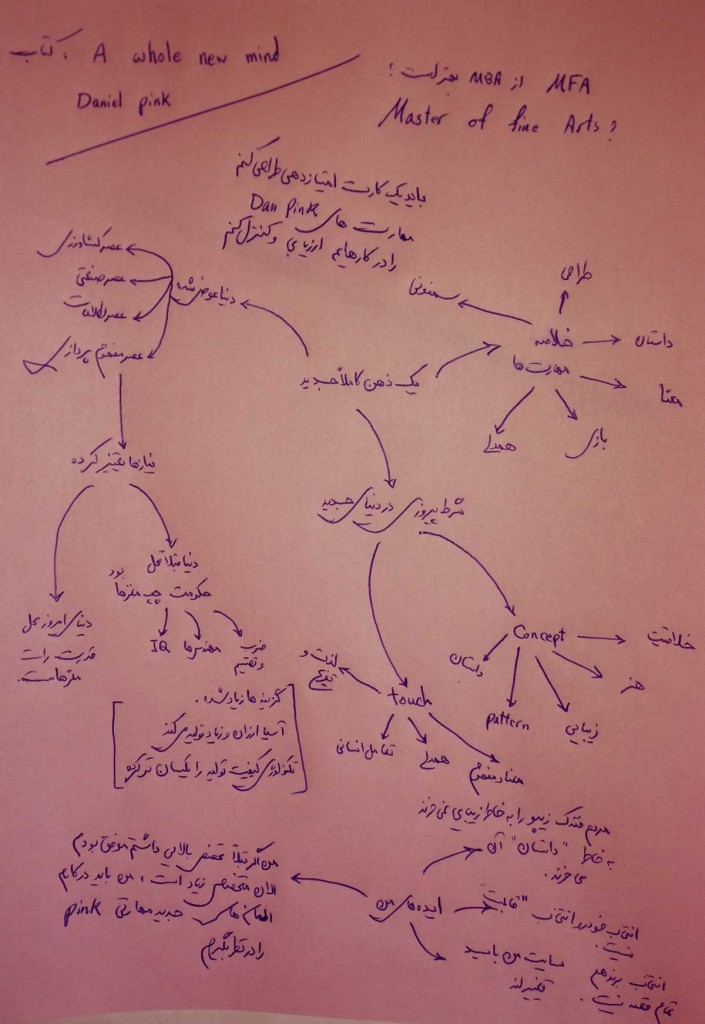 کتاب: A whole new mind
Daniel pink
MFA از MBA بهتر است؟
Master of fine Arts?
باید یک کارت امتیازدهی طراحی کنم
مهارت های Dan Pink
را در کارهایم ارزیابی و کنترل کنم
عصر کشاورزی
عصر صنعتی
عصر اطلاعات
عصر مفهوم پردازی
دنیا عوض شده
سمفونی
طراحی
خلاصه
مهارت ها
داستان
معنا
بازی
همدلی
یک ذهن کاملاً جدید
نیازها تغییر کرده
شرط پیروزی در دنیای جدید
دنیا قبلاً محل
حکومت چپ مغزها بود
IQ
مهندس‌ها
ضرب
و تقسیم
دنیای امروز محل
قدرت راست
مغزهاست.
Concept
خلاقیت
هنر
زیبایی
pattern
داستان
touch
لذت و
تفریح
تعامل انسانی
همدلی
معنا و مفهوم
گزینه ها زیاد شده.
آسیا ارزان و زیاد تولید می کند
تکنولوژی کیفیت تولید را یکسان تر کرده
مردم فندک زیپو را به خاطر زیبایی نمی خرند
به خاطر "داستان" آن
می خرند.
ایده های من
من اگر قبلاً تخصص بالایی داشتم موفق بودم
الان متخصص زیاد است، من باید در کارم
المان های جدید مهارتی pink
را در نظر بگیرم
انتخاب خودرو انتخاب "قالب"
نیست.
انتخاب برند هم
تمام قصه نیست.
سایت من باید
تغییر کند